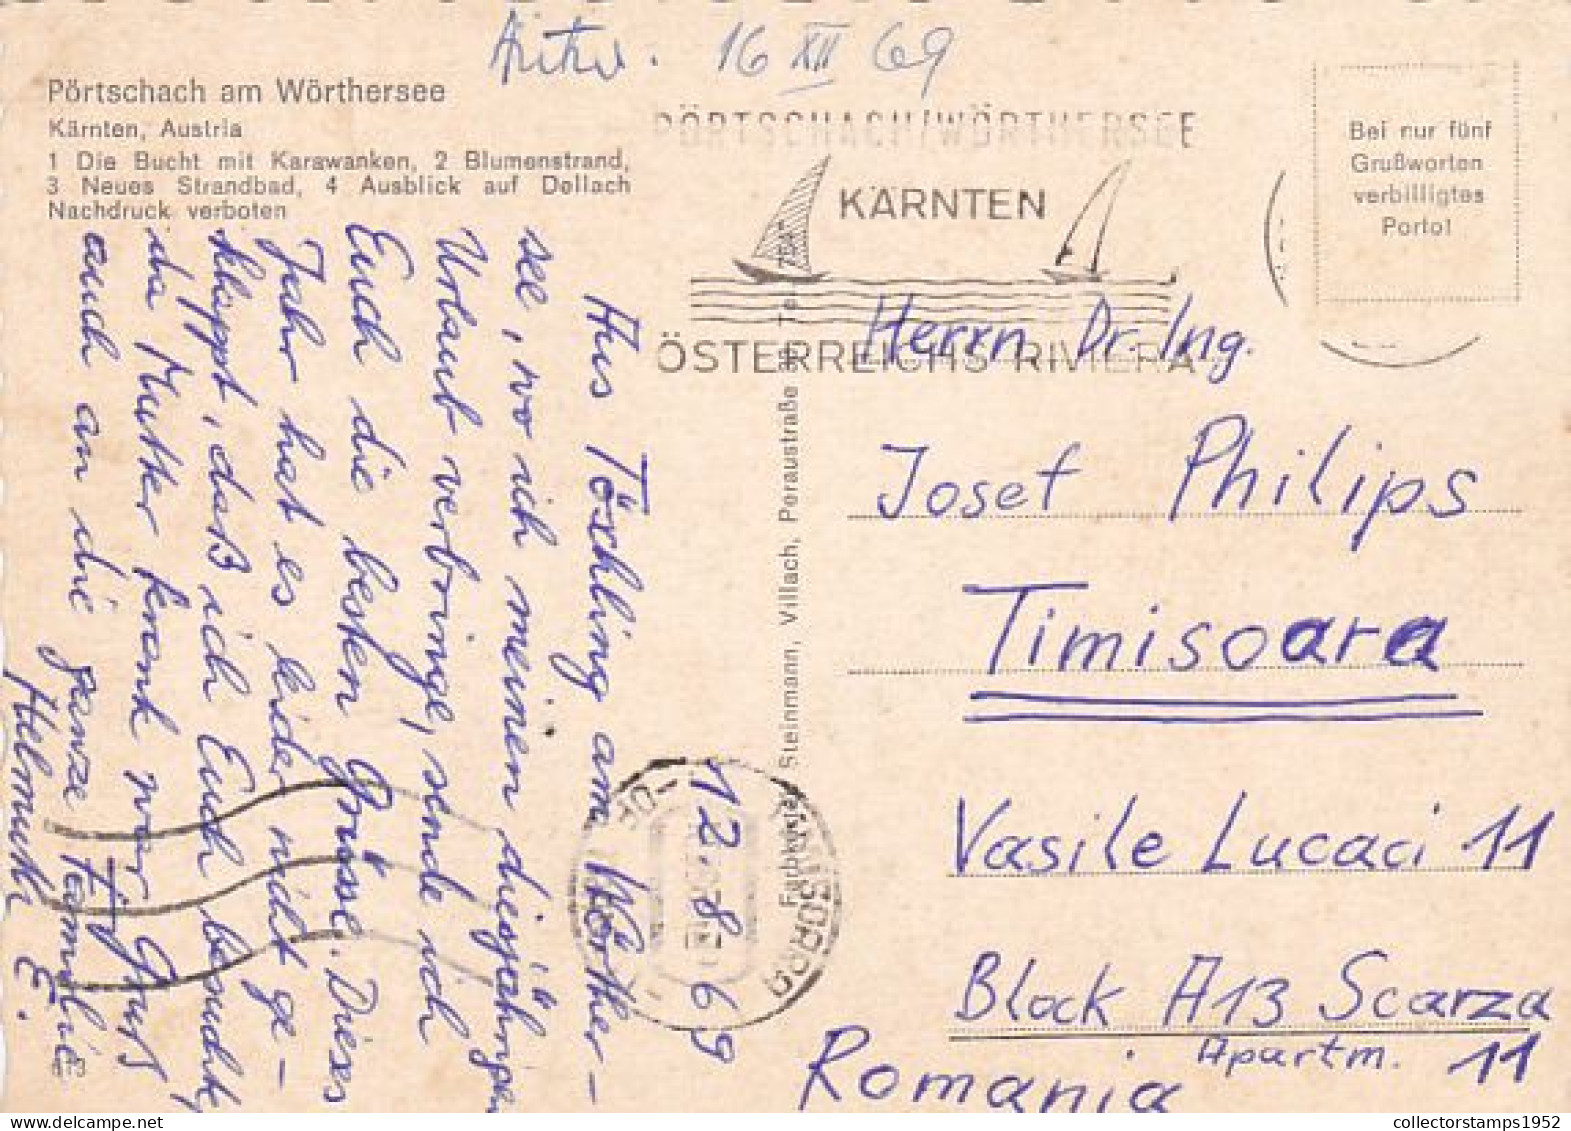 16 XII 69
Pörtschach am Wörthersee
Kärnten, Austria
1 Die Bucht mit Karawanken, 2 Blumenstrand,
3 Neues Strandbad, 4 Ausblick auf Dellach
Nachdruck verboten
PÖRTSCHACH/WÖRTHERSEE
KÄRNTEN
ÖSTERREICHS RIVIERA
Bei nur fünf
Grußworten
verbilligtes
Porto!
12.8.69
Aus Töschling am Wörther-
see, wo ich meinen diesjährigen
Urlaub verbringe, sende ich
Euch die besten Grüsse. Dieses
Jahr hat es leider nicht ge-
klappt, daß ich Euch besuchte,
da Mutter krank war. Gruß
auch an die ganze Familie
Helmuth E.
Steinmann, Villach, Peraustraße
Herrn Dr. Ing.
Josef Philips
Timisoara
Vasile Lucaci 11
Block A13 Scarza
Apartm. 11
Romania
473
collectorstamps1952